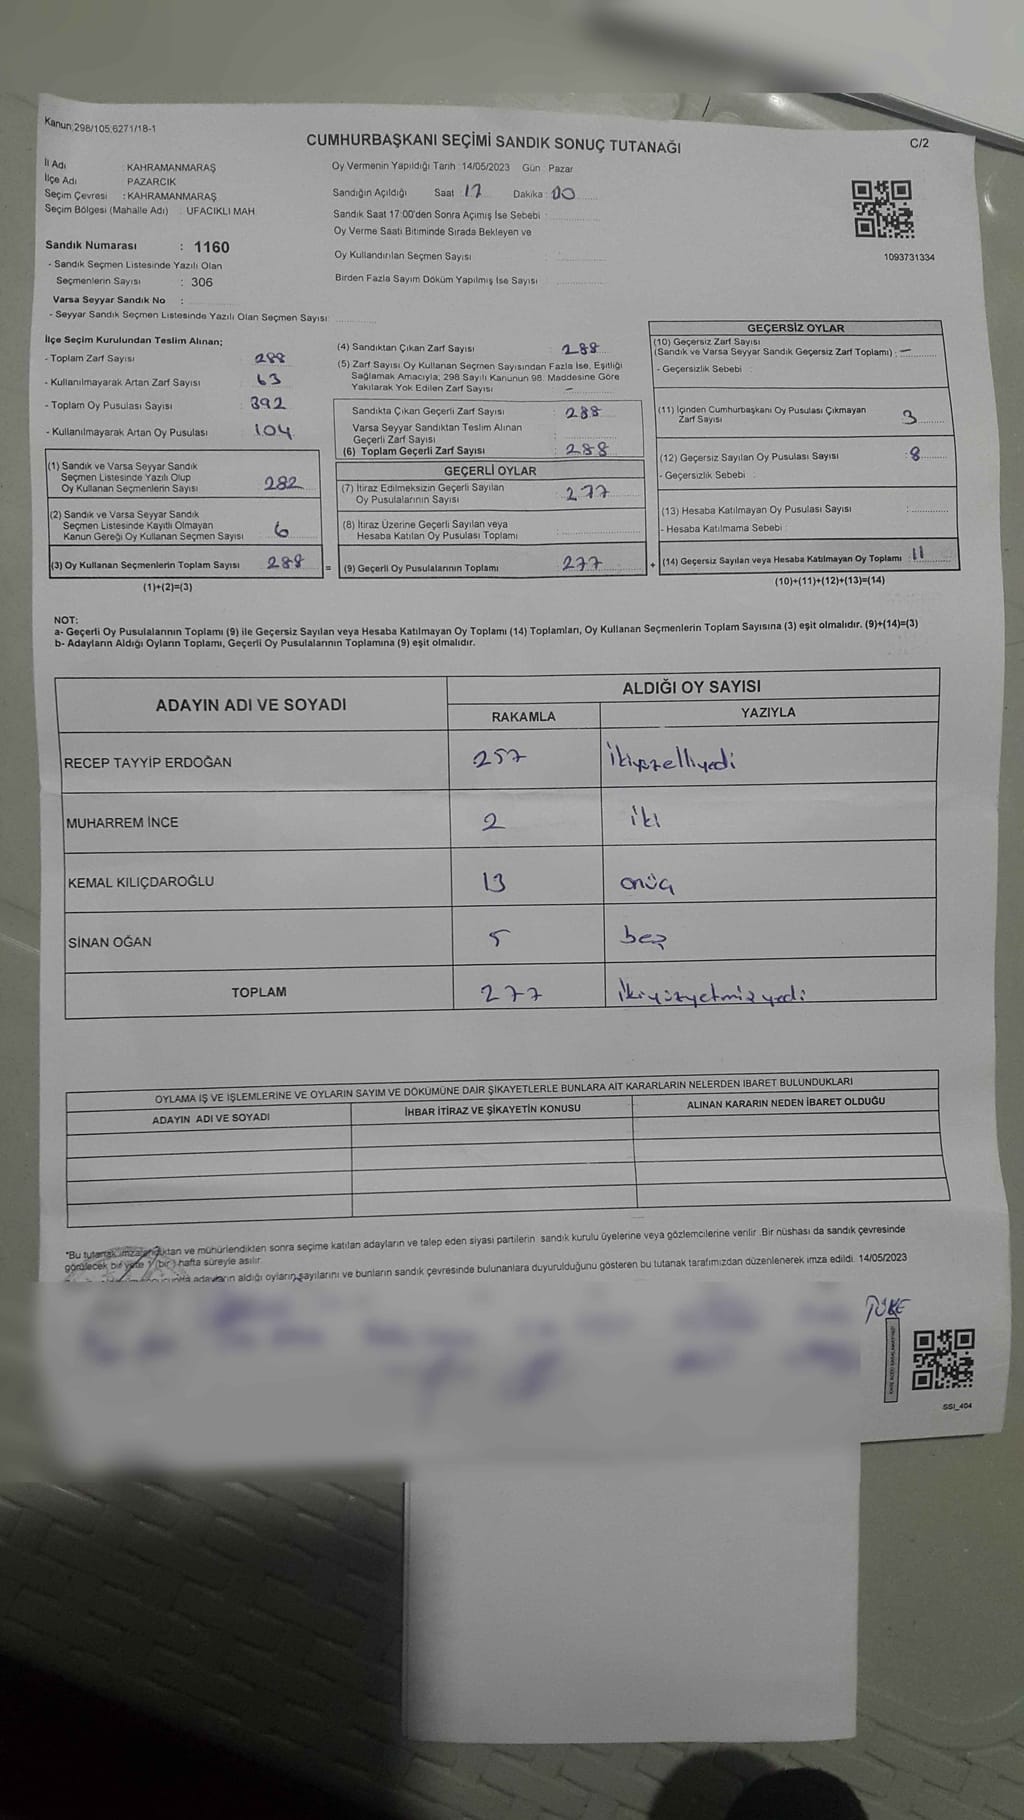 Kanun;298/105,6271/18-1
C/2
CUMHURBAŞKANI SEÇİMİ SANDIK SONUÇ TUTANAĞI
İl Adı : KAHRAMANMARAŞ
İlçe Adı : PAZARCIK
Seçim Çevresi : KAHRAMANMARAŞ
Seçim Bölgesi (Mahalle Adı) : UFACIKLI MAH
Oy Vermenin Yapıldığı Tarih : 14/05/2023 Gün : Pazar
Sandığın Açıldığı Saat : 17 Dakika : 00
Sandık Saat 17:00'den Sonra Açımış İse Sebebi :
Oy Verme Saati Bitiminde Sırada Bekleyen ve
Oy Kullandırılan Seçmen Sayısı :
Birden Fazla Sayım Döküm Yapılmış İse Sayısı :
1093731334
Sandık Numarası : 1160
- Sandık Seçmen Listesinde Yazılı Olan
Seçmenlerin Sayısı : 306
Varsa Seyyar Sandık No :
- Seyyar Sandık Seçmen Listesinde Yazılı Olan Seçmen Sayısı:
İlçe Seçim Kurulundan Teslim Alınan;
- Toplam Zarf Sayısı
- Kullanılmayarak Artan Zarf Sayısı 63
- Toplam Oy Pusulası Sayısı 392
- Kullanılmayarak Artan Oy Pusulası 104
(1) Sandık ve Varsa Seyyar Sandık
Seçmen Listesinde Yazılı Olup
Oy Kullanan Seçmenlerin Sayısı 282
(2) Sandık ve Varsa Seyyar Sandık
Seçmen Listesinde Kayıtlı Olmayan
Kanun Gereği Oy Kullanan Seçmen Sayısı 6
(3) Oy Kullanan Seçmenlerin Toplam Sayısı 288 =
(1)+(2)=(3)
(4) Sandıktan Çıkan Zarf Sayısı 288
(5) Zarf Sayısı Oy Kullanan Seçmen Sayısından Fazla İse, Eşitliği
Sağlamak Amacıyla; 298 Sayılı Kanunun 98. Maddesine Göre
Yakılarak Yok Edilen Zarf Sayısı –
Sandıkta Çıkan Geçerli Zarf Sayısı 288
Varsa Seyyar Sandıktan Teslim Alınan
Geçerli Zarf Sayısı
(6) Toplam Geçerli Zarf Sayısı 288
GEÇERLİ OYLAR
(7) İtiraz Edilmeksizin Geçerli Sayılan
Oy Pusulalarının Sayısı 277
(8) İtiraz Üzerine Geçerli Sayılan veya
Hesaba Katılan Oy Pusulası Toplamı
(9) Geçerli Oy Pusulalarının Toplamı 277 +
GEÇERSİZ OYLAR
(10) Geçersiz Zarf Sayısı
(Sandık ve Varsa Seyyar Sandık Geçersiz Zarf Toplamı) : –
- Geçersizlik Sebebi :
(11) İçinden Cumhurbaşkanı Oy Pusulası Çıkmayan
Zarf Sayısı 3
(12) Geçersiz Sayılan Oy Pusulası Sayısı : 8
- Geçersizlik Sebebi :
(13) Hesaba Katılmayan Oy Pusulası Sayısı :
- Hesaba Katılmama Sebebi :
(14) Geçersiz Sayılan veya Hesaba Katılmayan Oy Toplamı : 11
(10)+(11)+(12)+(13)=(14)
NOT:
a- Geçerli Oy Pusulalarının Toplamı (9) ile Geçersiz Sayılan veya Hesaba Katılmayan Oy Toplamı (14) Toplamları, Oy Kullanan Seçmenlerin Toplam Sayısına (3) eşit olmalıdır. (9)+(14)=(3)
b- Adayların Aldığı Oyların Toplamı, Geçerli Oy Pusulalarının Toplamına (9) eşit olmalıdır.
ADAYIN ADI VE SOYADI ALDIĞI OY SAYISI
RAKAMLA YAZIYLA
RECEP TAYYİP ERDOĞAN 257 ikiyüzelliyedi
MUHARREM İNCE 2 iki
KEMAL KILIÇDAROĞLU 13 onüç
SİNAN OĞAN 5 beş
TOPLAM 277 ikiyüzyetmişyedi
OYLAMA İŞ VE İŞLEMLERİNE VE OYLARIN SAYIM VE DÖKÜMÜNE DAİR ŞİKAYETLERLE BUNLARA AİT KARARLARIN NELERDEN İBARET BULUNDUKLARI
ADAYIN ADI VE SOYADI İHBAR İTİRAZ VE ŞİKAYETİN KONUSU ALINAN KARARIN NEDEN İBARET OLDUĞU
*Bu tutanak imzalandıktan ve mühürlendikten sonra seçime katılan adayların ve talep eden siyasi partilerin sandık kurulu üyelerine veya gözlemcilerine verilir. Bir nüshası da sandık çevresinde
görülecek bir yere 1 (bir) hafta süreyle asılır.
adayların aldığı oyların sayılarını ve bunların sandık çevresinde bulunanlara duyurulduğunu gösteren bu tutanak tarafımızdan düzenlenerek imza edildi. 14/05/2023
SSI_404